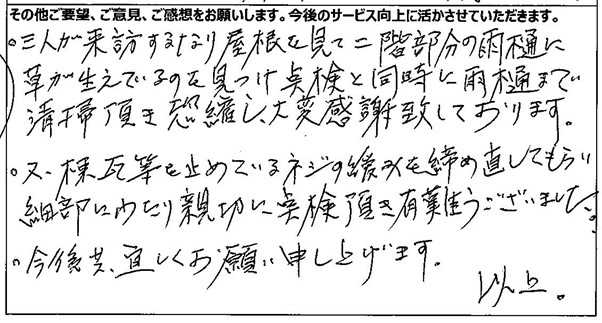 その他ご要望、ご意見、ご感想をお願いします。今後のサービス向上に活かさせていただきます。
○三人が来訪するなり屋根を見て二階部分の雨樋に
草が生えているのを見つけ点検と同時に雨樋まで
清掃頂き恐縮し、大変感謝致しております。
○又、棟瓦等を止めているネジの緩みを締め直してもらい
細部にわたり親切に点検頂き有難うございました。
○今後共、宜しくお願い申し上げます。
以上。